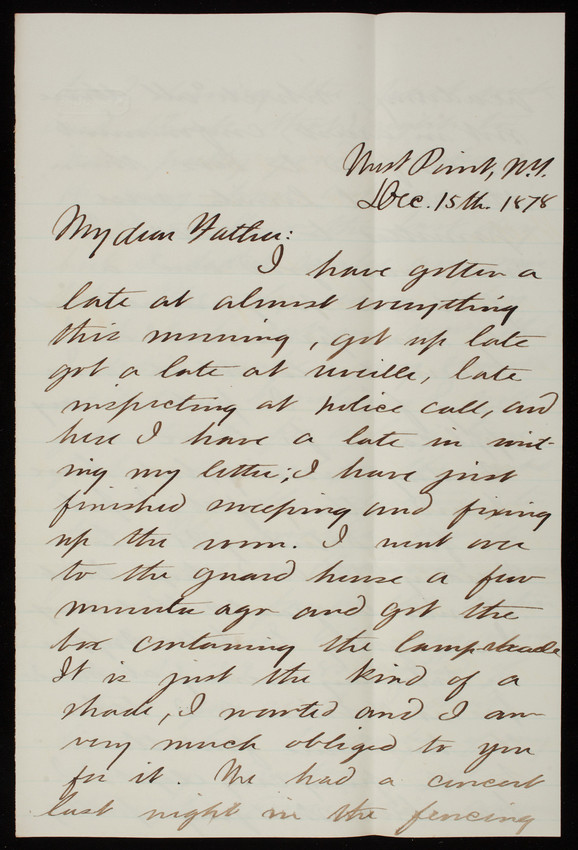 West Point, N.Y.
Dec. 15th. 1878
My dear Father:
I have gotten a
late at almost everything
this morning, got up late
got a late at reveille, late
inspecting at police call, and
here I have a late in writ-
ing my letter; I have just
finished sweeping and fixing
up the room. I went over
to the guard house a few
minutes ago and got the
box containing the lampshade
It is just the kind of a
shade, I wanted and I am
very much obliged to you
for it. We had a concert
last night in the fencing